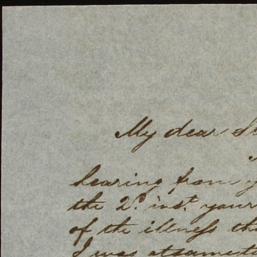 My dear
hearing from
the 2d. inst. your
of the illness
I was at